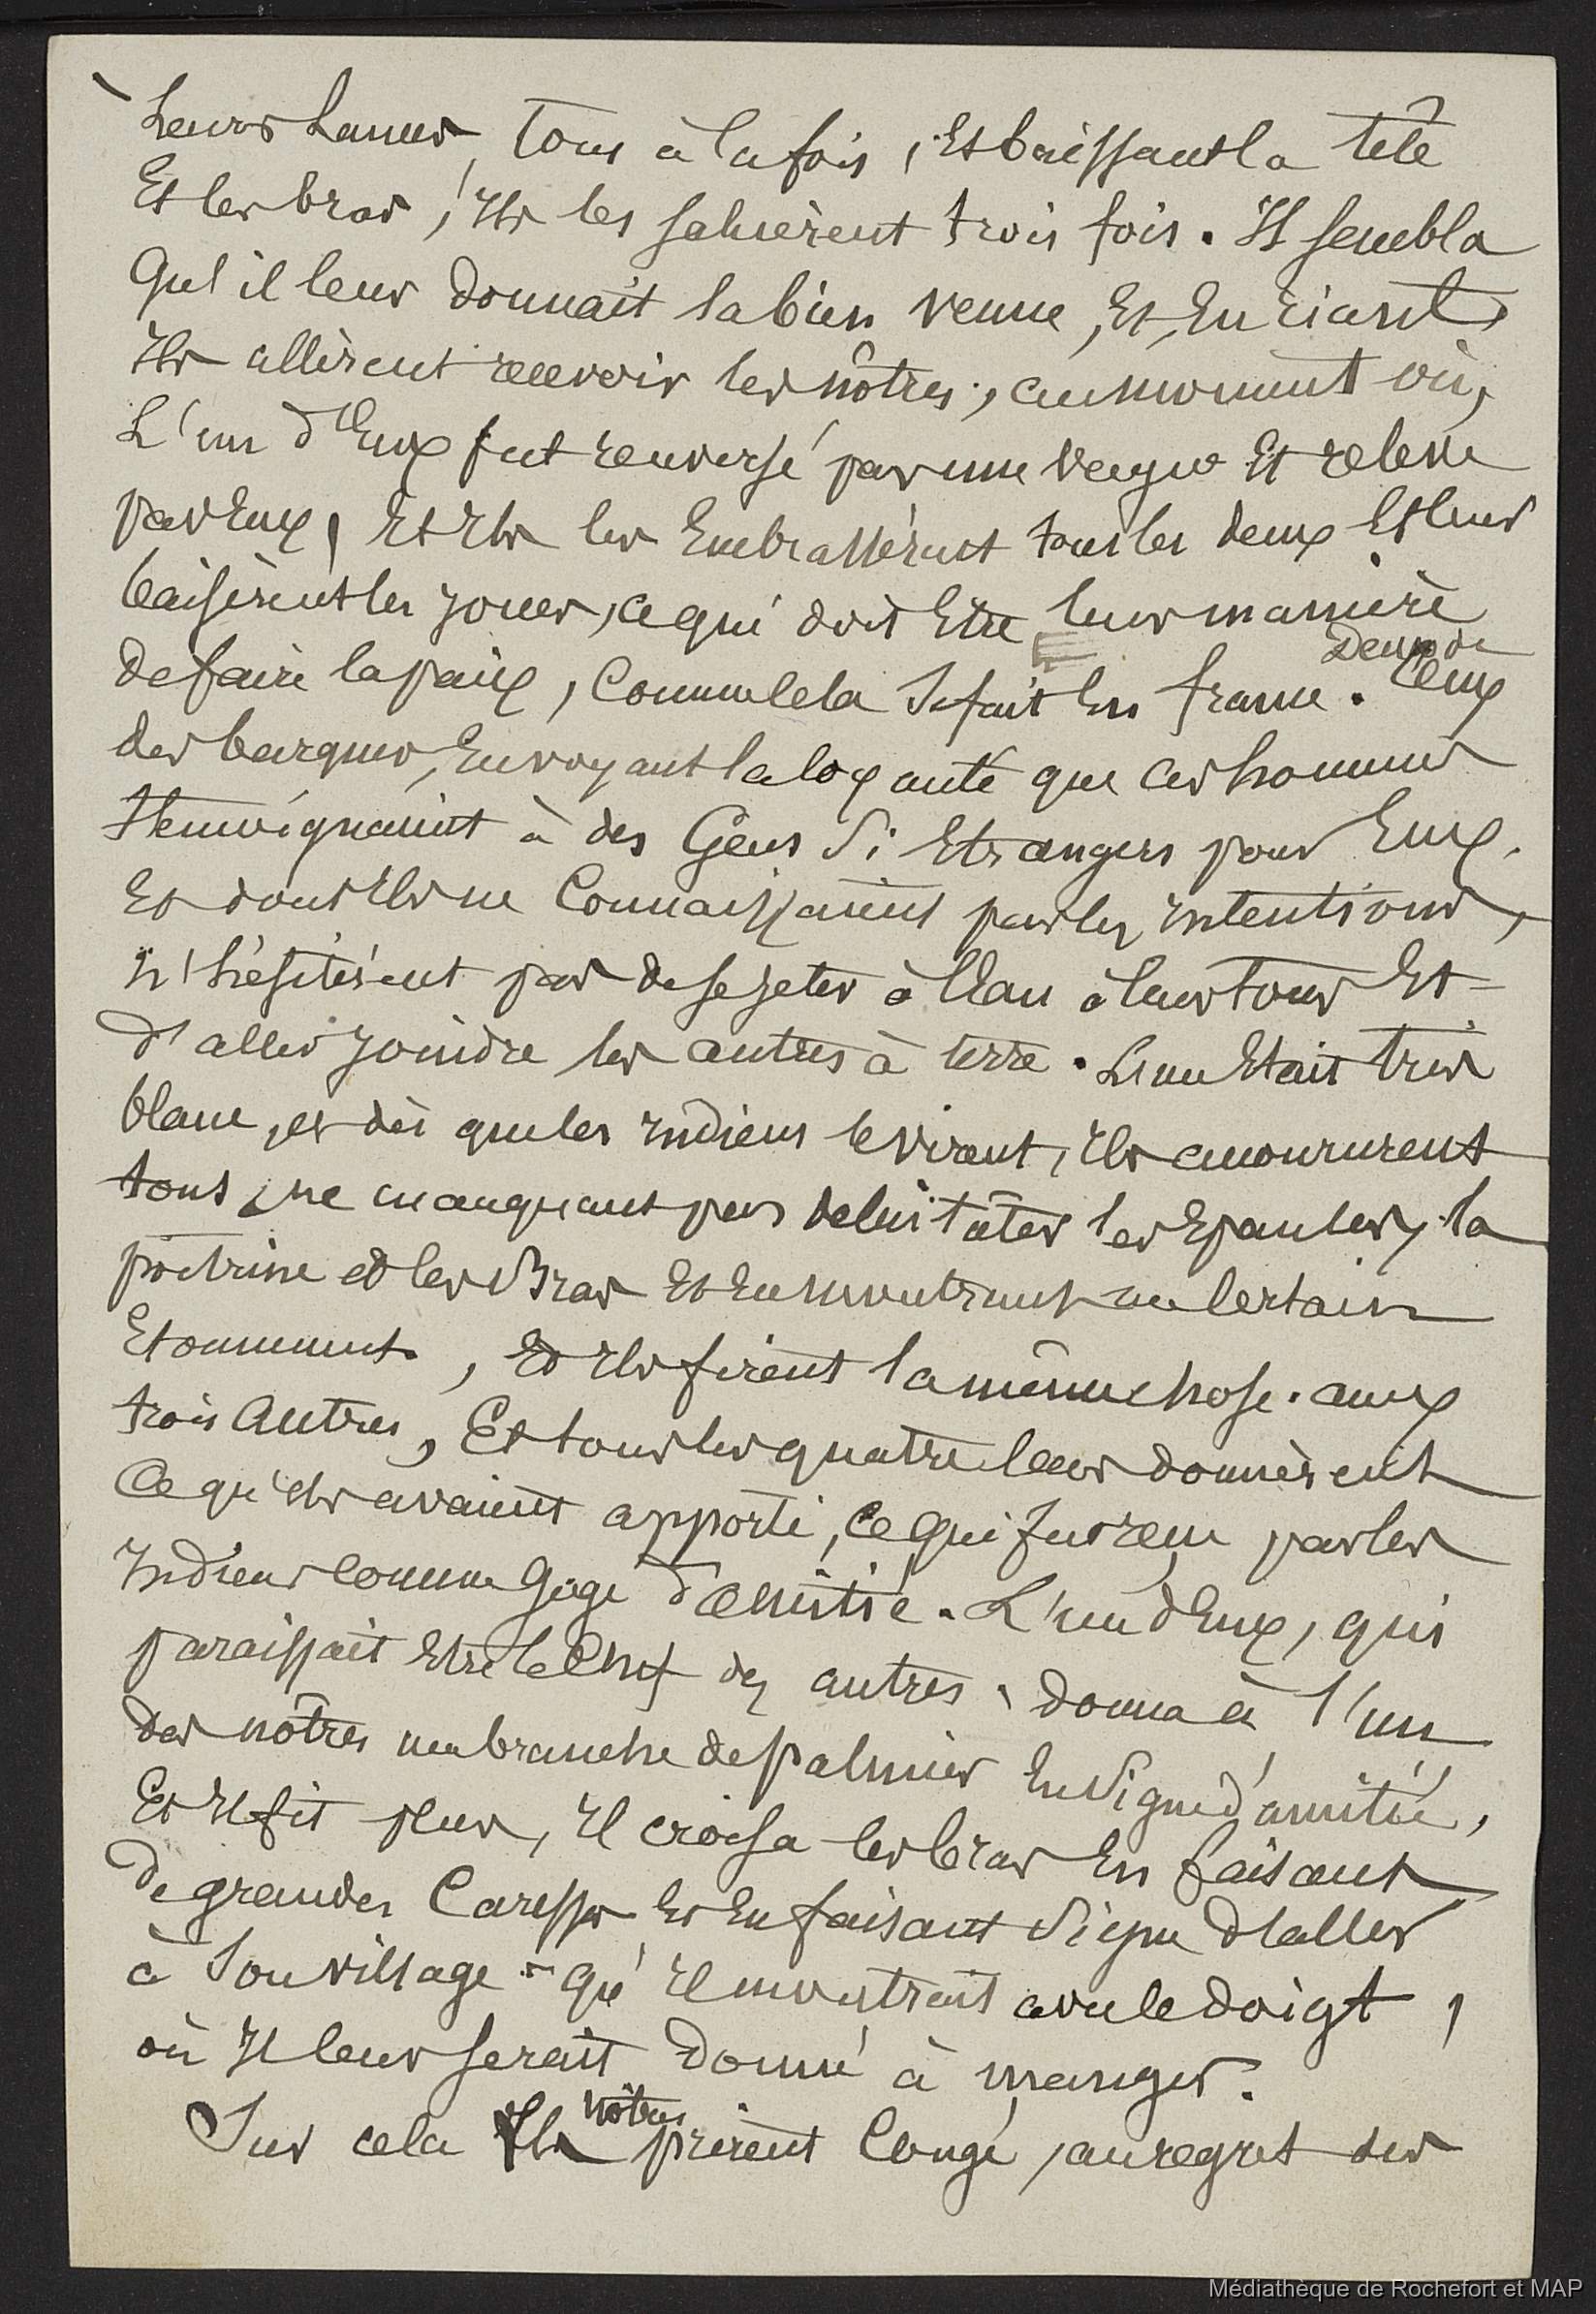 Leurs lances, tous à la fois, Et baissant la tête
Et les bras, Ils les saluèrent trois fois. Il sembla
Qu'il leur donnait la bien venue, Et, En riant,
Ils allèrent recevoir les nôtres, au moment où,
L'un d'Eux fut renversé par une vague Et relevé
par Eux, Et Ils les Embrassèrent tous les deux Et leur
baisèrent les joues, ce qui doit Etre leur manière
de faire la paix, Comme cela se fait En france. Deux de
Ceux
des barques, En voyant la loyauté que ces hommes
témoignaient à des Gens si Etrangers pour Eux.
Et dont Ils ne Connaissaient pas les Intentions,
n'hésitèrent pas de se jeter à l'Eau à leur tour Et
d'aller joindre les autres à terre. L'un Etait très
blanc, et dès que les Indiens le virent, Ils accoururent
tous, ne manquant pas de lui tâter les Epaules, la
poitrine et les Bras Et En montrant un Certain
Etonnement, Et Ils firent la même chose. aux
trois Autres, Et tous les quatre leur donnèrent
Ce qu'ils avaient apporté, Ce qui fut reçu par les
Indiens Comme Gage d'amitié. L'un d'Eux, qui
paraissait Etre le Chef des autres, donna à l'un
des nôtres une branche de Palmier En Signe d'amitié,
Et Il fit plus, Il croisa les bras En faisant
De grandes Caresses Et En faisant Signe d'aller
à Son village qu'Il montrait avec le doigt,
où Il leur serait Donné à manger.
Sur cela Ils nôtres prirent Congé, au regret des
Médiathèque de Rochefort et MAP